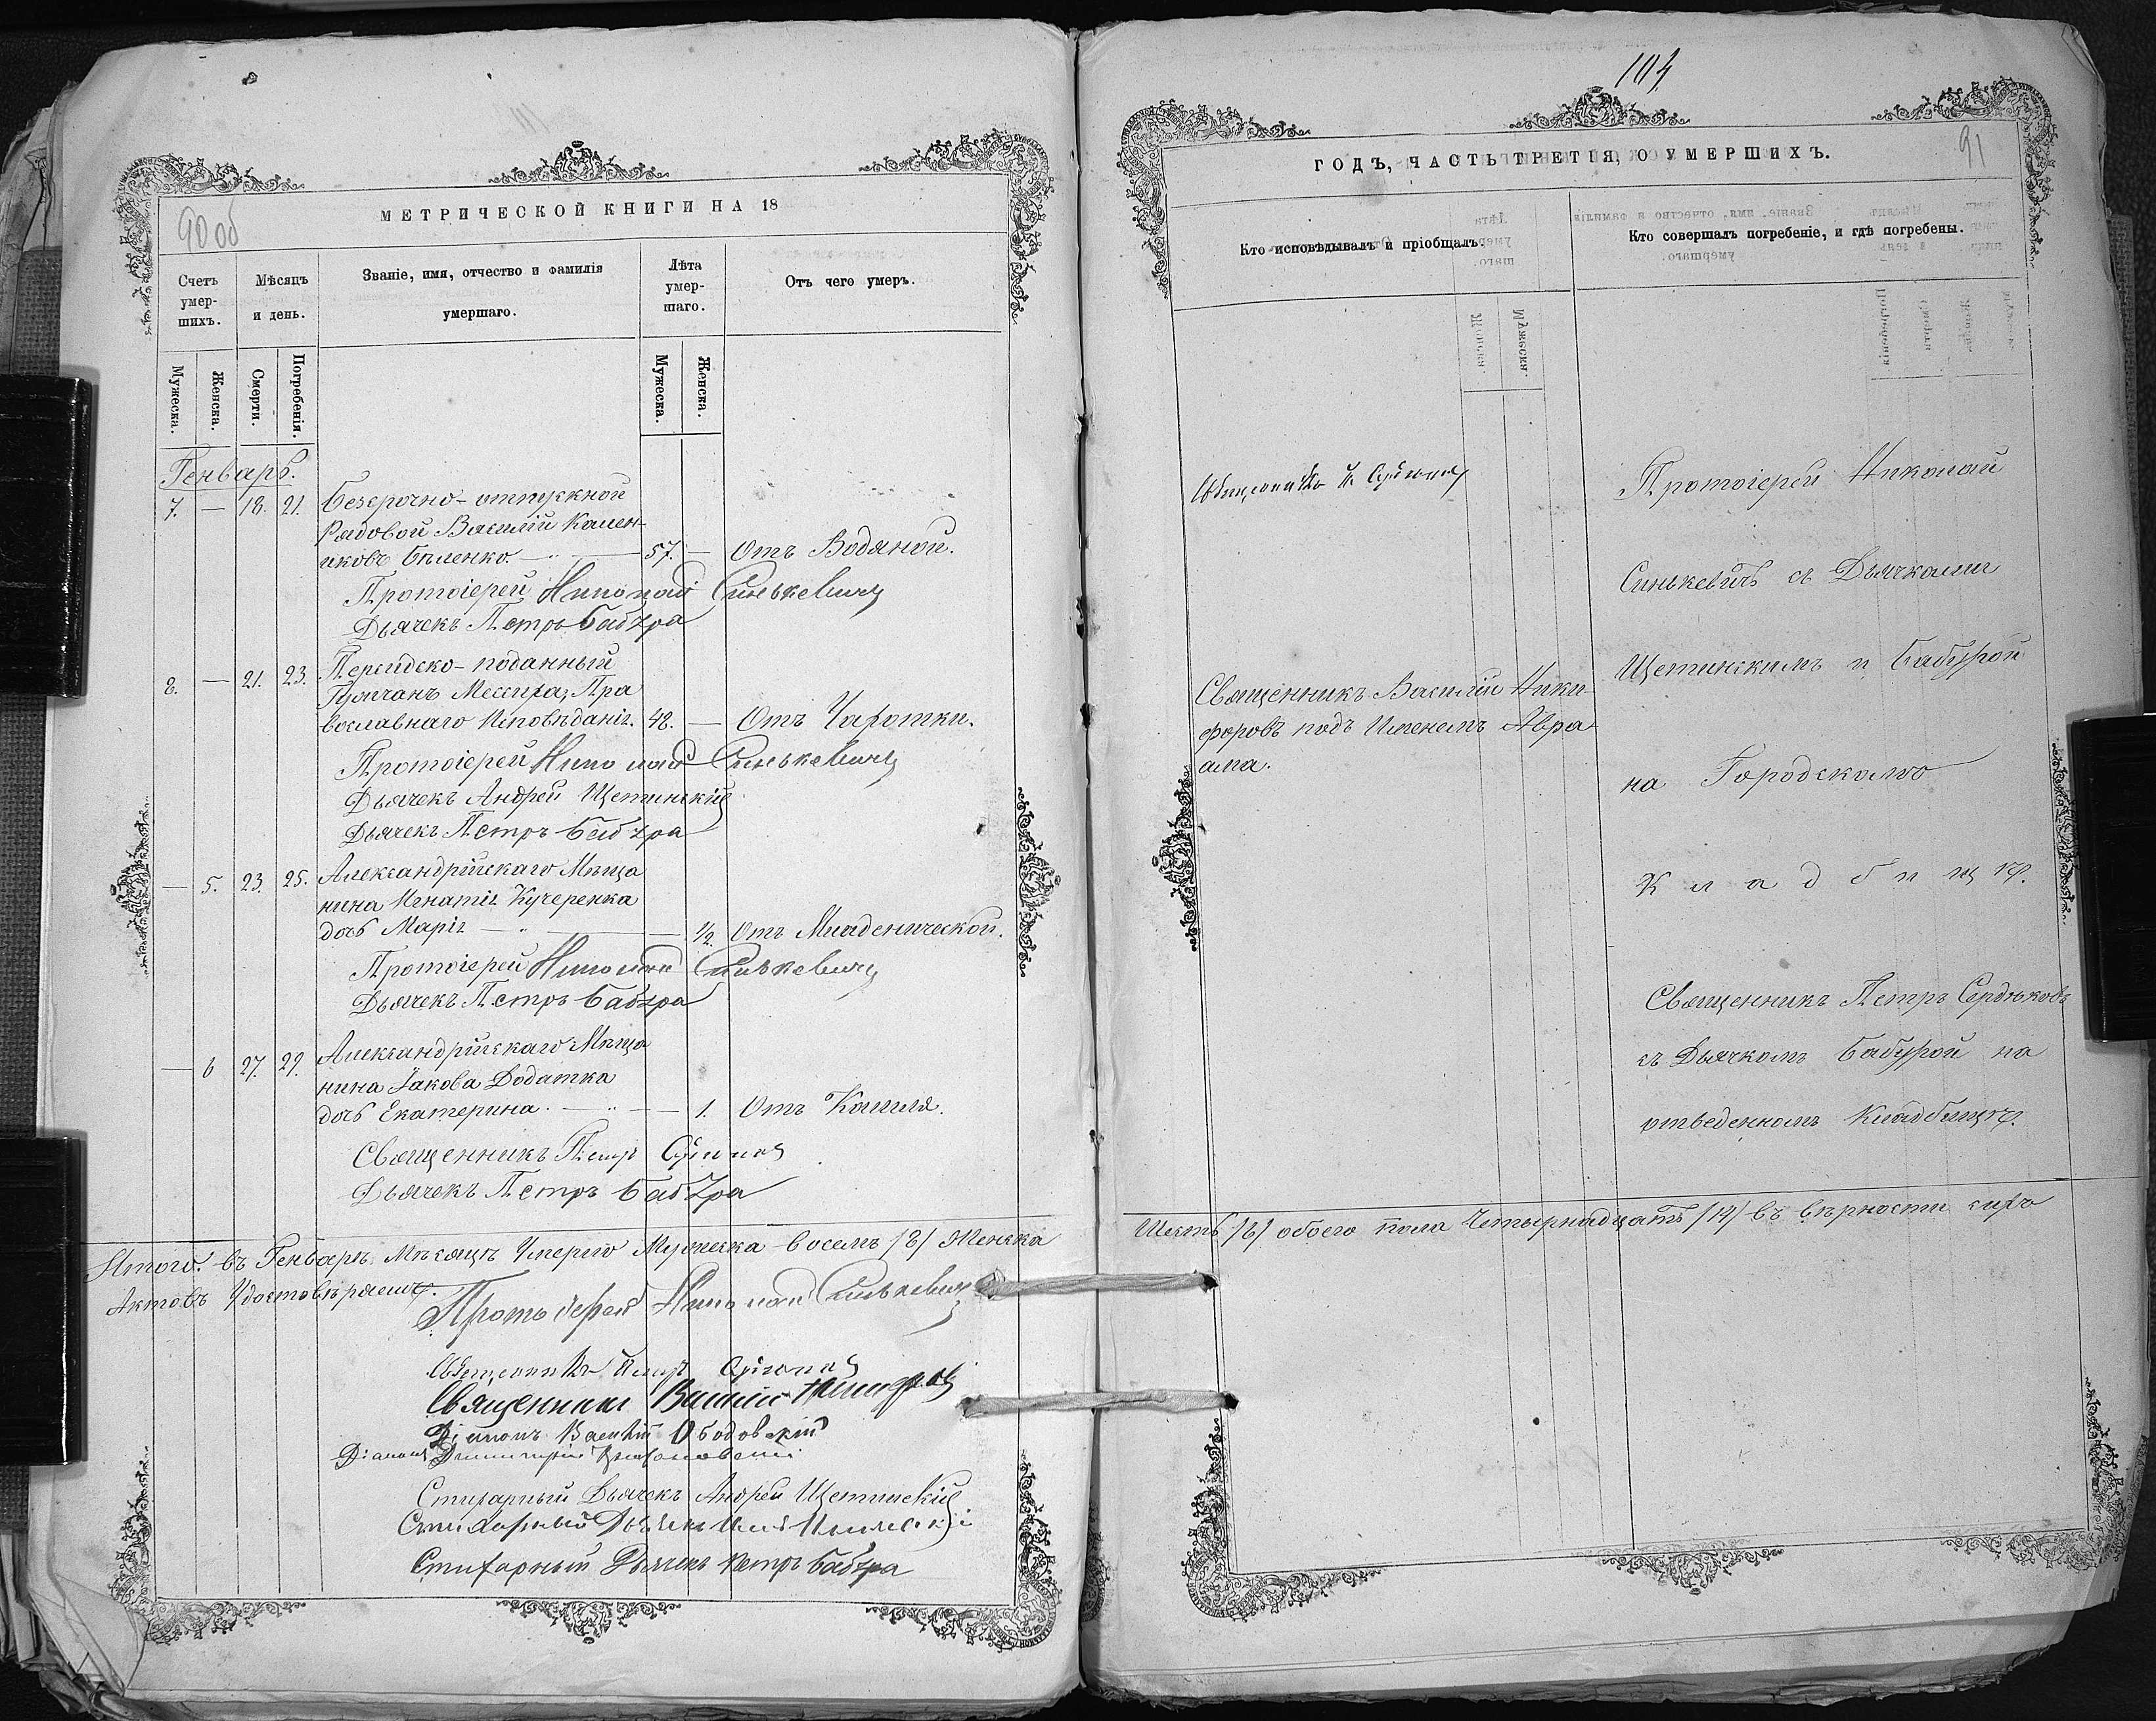 90 об
МЕТРИЧЕСКОЙ КНИГИ НА 18
Счетъ умер-шихъ.
Мѣсяцъ и день.
Званіе, имя, отчество и фамилія умершаго.
Лѣта умер-шаго.
Отъ чего умеръ.
Мужеска.
Женска.
Смерти.
Погребенія.
Мужеска.
Женска.
Генварь.
7. — 18. 21. Безсрочно-отпускной
Рядовой Василій Кален-
иковъ Бѣленко. — 57. — Отъ Водяной.
Протоіерей Николай Синькевичъ
Дьячекъ Петръ Бабура
8. — 21. 23. Персидско-поданный
Православнаго Исповѣданія. 42. — Отъ Чахотки.
Протоіерей Николай Синькевичъ
Дьячекъ Андрей Щетинскій
Дьячекъ Петръ Бабура
— 5. 23. 25. Александрійскаго Мѣща
нина Игнатія Кучеренка
дочь Марія — — ½. Отъ Младенческой.
Протоіерей Николай Синькевичъ
Дьячекъ Петръ Бабура
— 6 27. 29. Александрійскаго Мѣща
нина Іакова Додатка
дочь Екатерина. — — 1. Отъ Кашля.
Священникъ Петръ
Дьячекъ Петръ Бабура
Итого. въ Генварѣ Мѣсяцѣ Умерло Мужеска восемь /8/ Женска
Актовъ Удостовѣряемъ.
Протоіерей Николай Синькевичъ
Священникъ Петръ
Священникъ Василій Никифоровъ
Діаконъ Василій Ободовскій
Діаконъ Димитрій
Стихарный Дьячекъ Андрей Щетинскій
Стихарный Дьячекъ
Стихарный Дьячекъ Петръ Бабура
104.
91
ГОДЪ, ЧАСТЬ ТРЕТІЯ, О УМЕРШИХЪ.
Кто исповѣдывалъ и пріобщалъ.
Кто совершалъ погребеніе, и гдѣ погребены.
Священникъ П.
Священникъ Василій Ники-
форовъ подъ Именемъ Авра
ама.
Протоіерей Николай
Синькевичъ съ Дьячками
Щетинскимъ и Бабурой
на Городскомъ
Кладбищѣ.
Священникъ Петръ Сердюковъ
съ Дьячкомъ Бабурой на
отведенномъ Кладбищѣ.
Шесть /6/ обоего пола Четырнадцать /14/ въ вѣрности сихъ